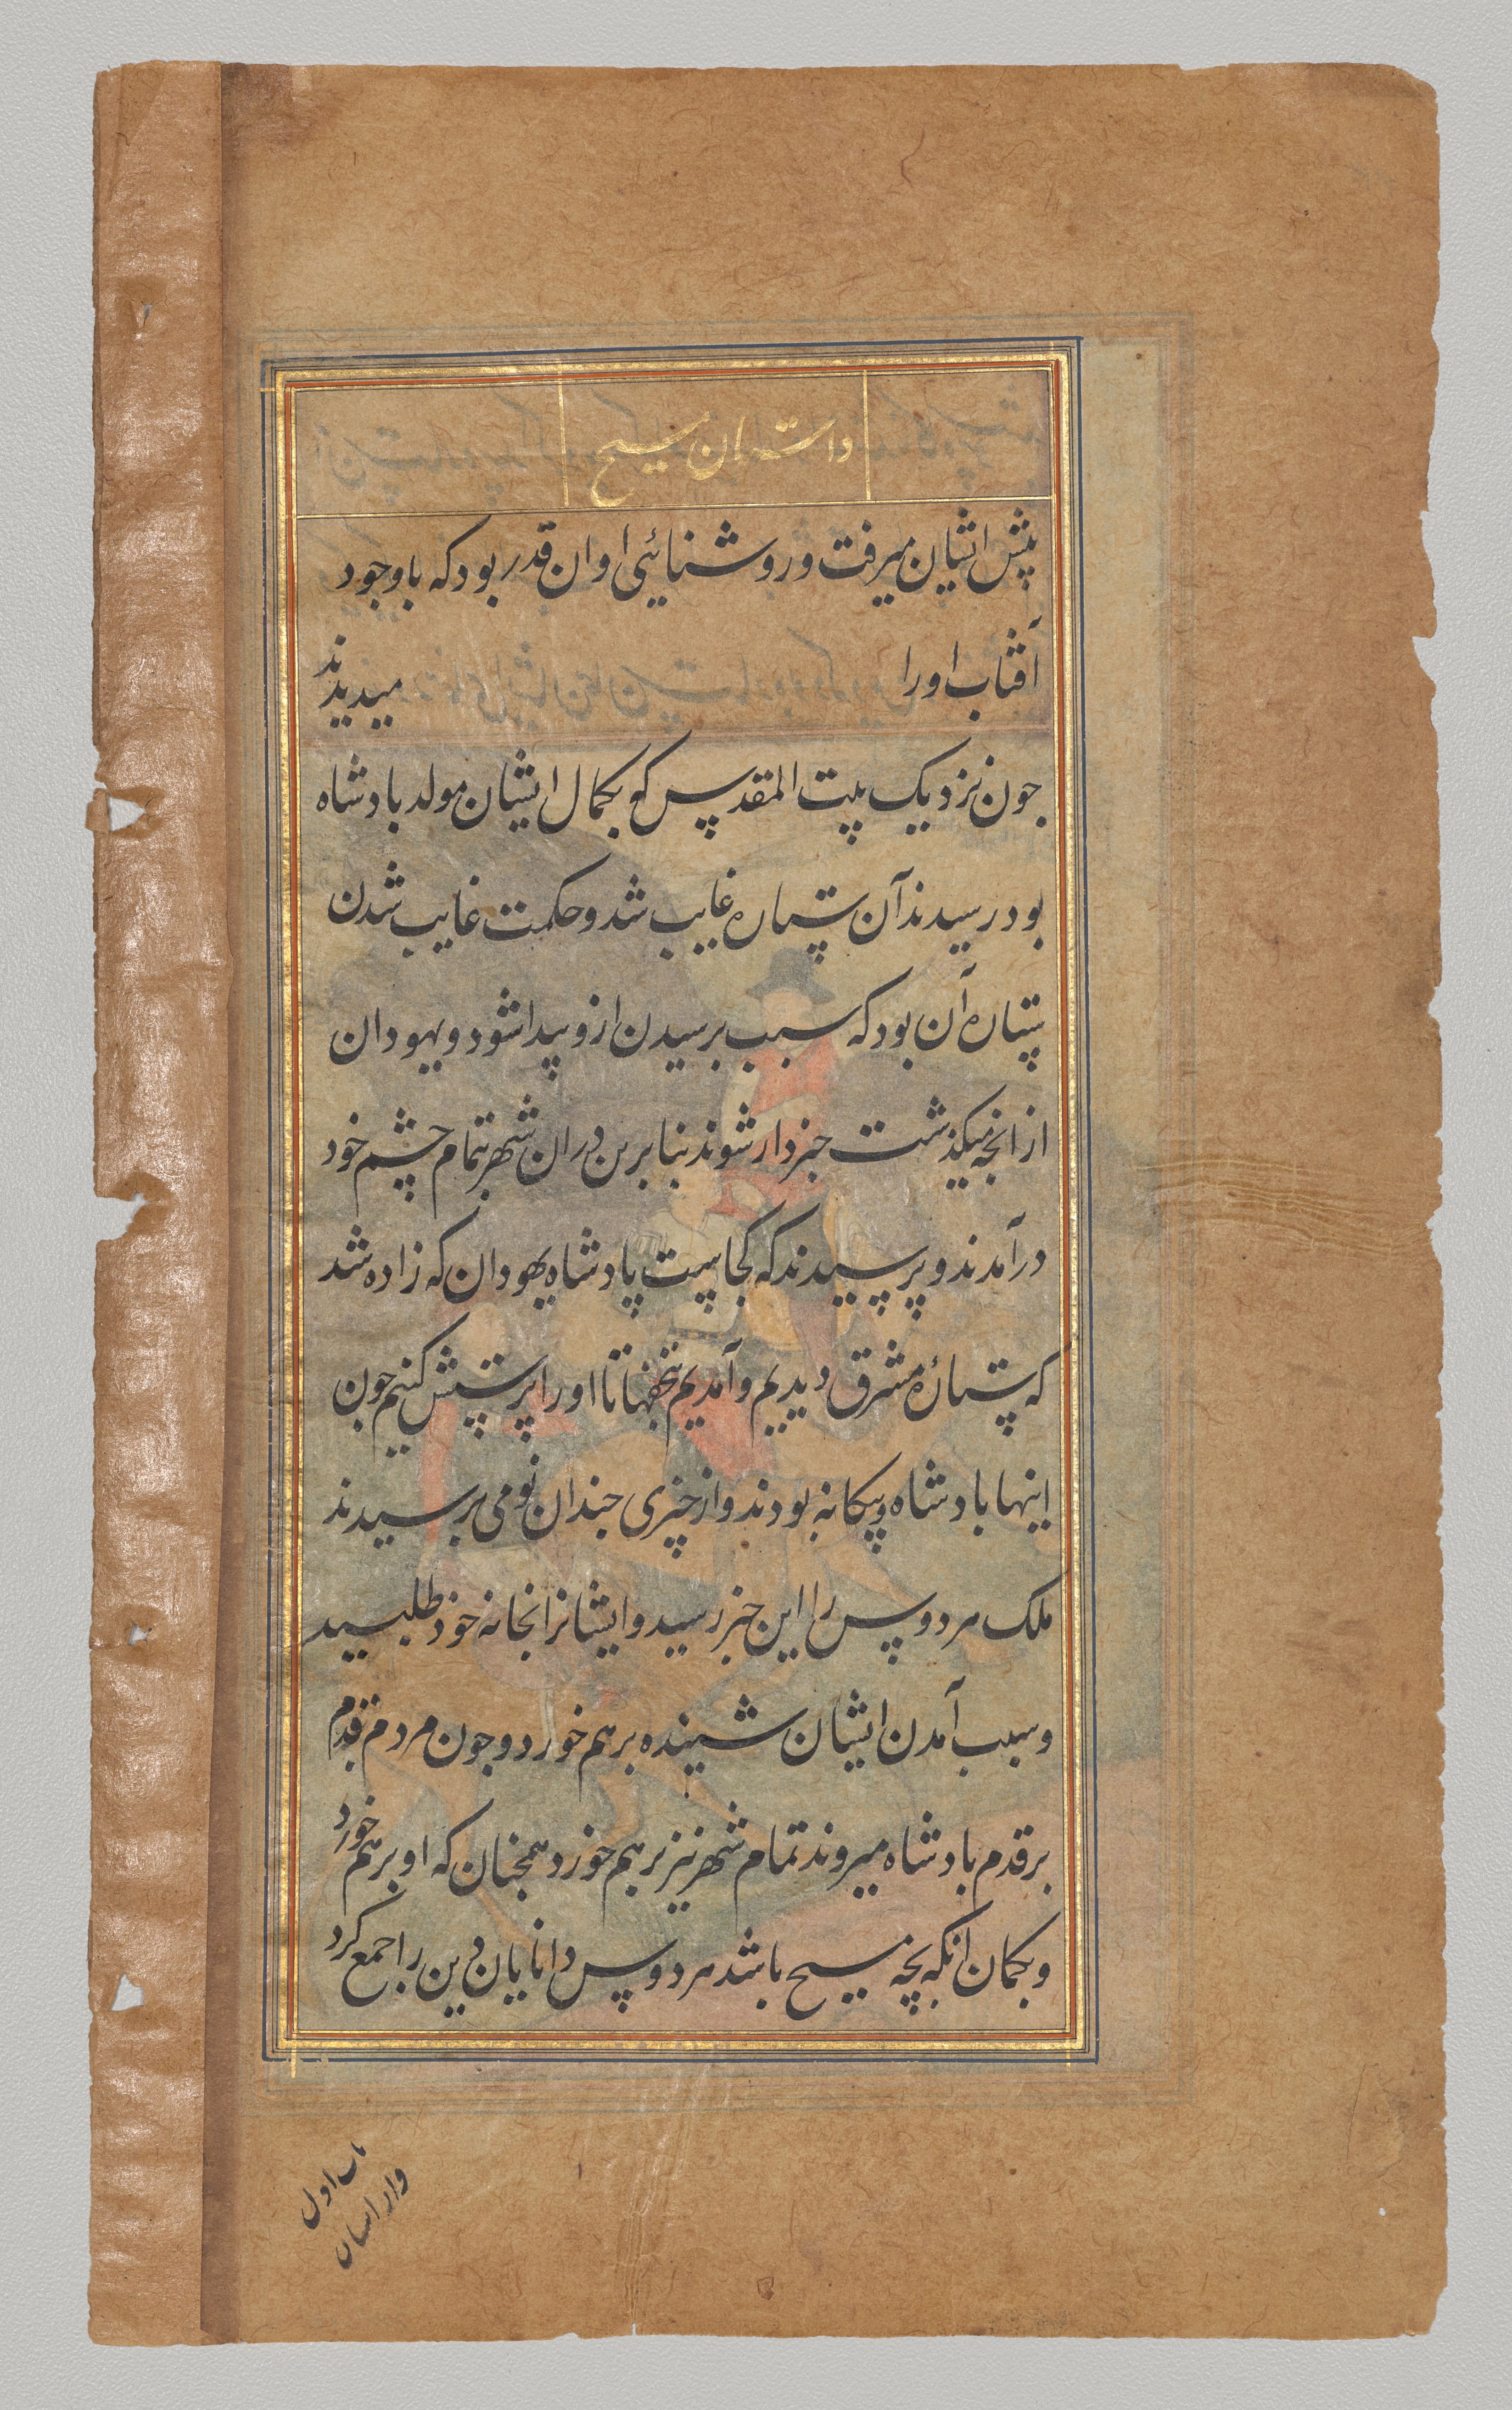 داستان مسیح
پیش ایشان میرفت و روشنائی او ان قدر بود که باوجود
آفتاب او را میدیدند
جون نزدیک بیت المقدس که بکمال ایشان مولد بادشاه
بود رسیدند آن ستاره غایب شد و حکمت غایب شدن
ستاره آن بود که سبب برسیدن ازو پیدا شود و یهودان
از انجه میکذشت خبردار شوند بنابرین دران شهر بتمام چشم خود
درآمدند و پرسیدند که کجاست پادشاه یهودان که زاده شد
که ستارهٔ مشرق دیدیم و آمدیم تا او را پرستش کنیم جون
اینها بادشاه و بیکانه بودند و از چیزی جندان نو می برسیدند
ملک هردوس را این خبر رسید و ایشانرا بخانه خود طلبید
و سبب آمدن ایشان شنیده برهم خورد و جون مردم قدم
بر قدم بادشاه میروند تمام شهر نیز برهم خورد همجنان که او برهم خورد
و بکمان انکه بچه مسیح باشد هردوس دانایان دین را جمع کرد